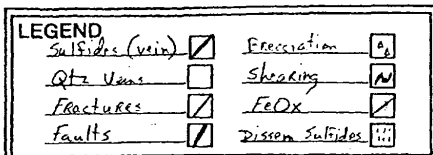 LEGEND
Sulfides (vein)
Qtz Veins
Fractures
Faults
Brecciation
Shearing
FeOx
Dissem Sulfides